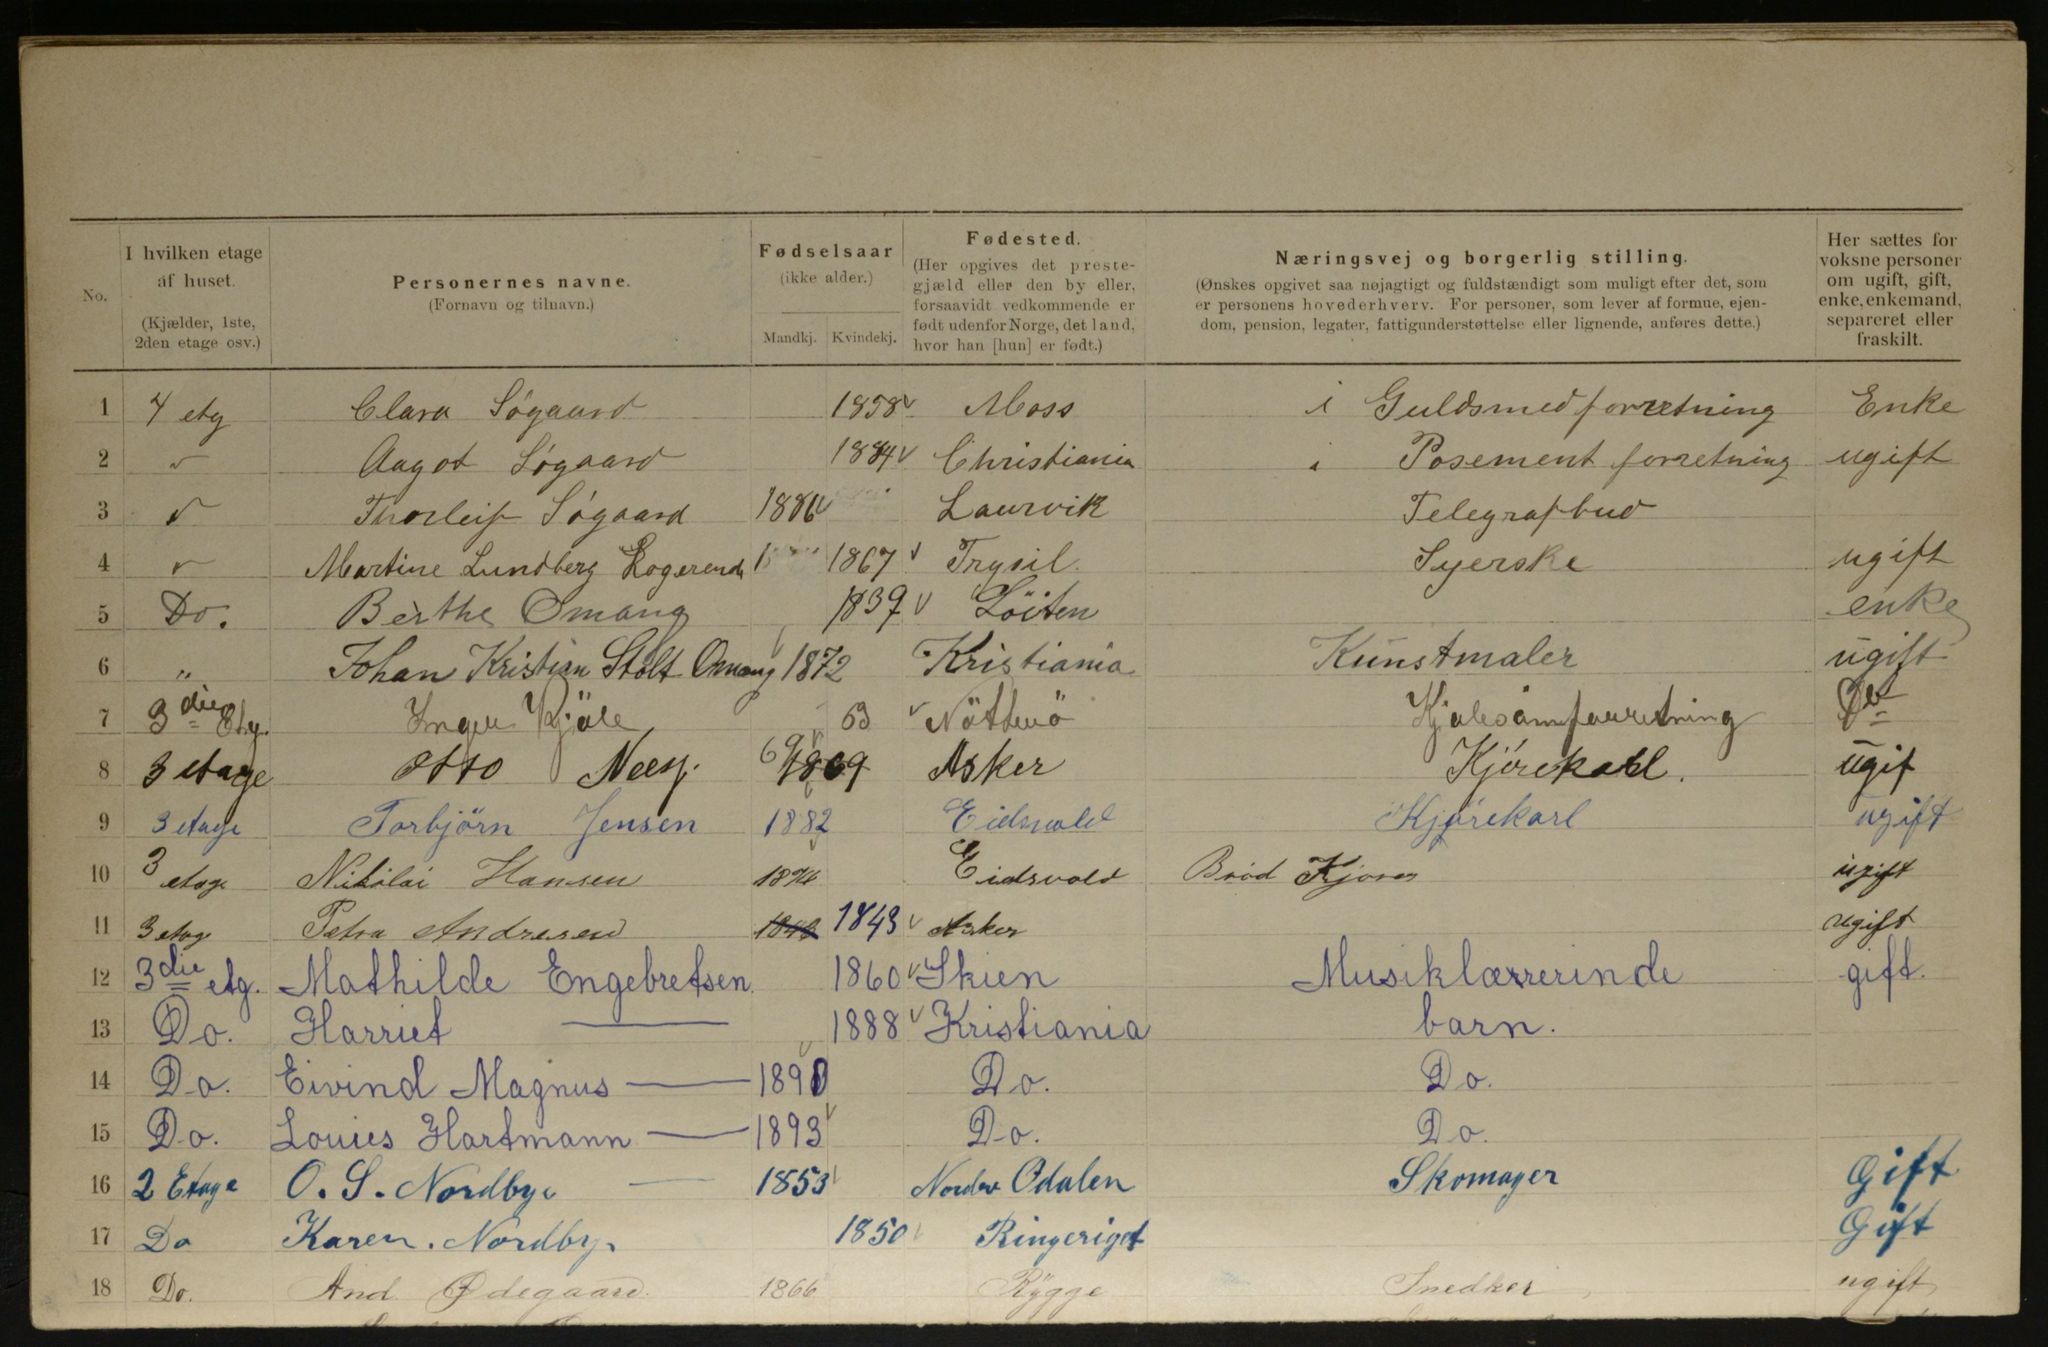 No.
I hvilken etage
af huset.
(Kjælder, 1ste,
2den etage osv.)
Personernes navne.
(Fornavn og tilnavn.)
Fødselsaar
(ikke alder.)
Mandkj. Kvindekj.
Fødested.
(Her opgives det preste-
gjæld eller den by eller,
forsaavidt vedkommende er
født udenfor Norge, det land,
hvor han [hun] er født.)
Næringsvej og borgerlig stilling.
(Ønskes opgivet saa nøjagtigt og fuldstændigt som muligt efter det, som
er personens hovederhverv. For personer, som lever af formue, ejen-
dom, pension, legater, fattigunderstøttelse eller lignende, anføres dette.)
Her sættes for
voksne personer
om ugift, gift,
enke, enkemand,
separeret eller
fraskilt.
1 4 etg Clara Søgaard 1858 Moss i Guldsmedforretning Enke
2 Aagot Søgaard 1884 Christiania i Posement forretning ugift
3 Thorleif Søgaard 1886 Laurvik Telegrafbud
4 Martine Lundberg Logerende 1867 Trysil Syerske ugift
5 Do. Berthe Omang 1839 Löiten enke
6 " Johan Kristian Stolt Omang 1872 Kristiania Kunstmaler ugift
7 3die Etg. Inger 63 Nötterö Do
8 3 etage Otto 69 1869 Asker Kjórekarl. ugif
9 3 etage Torbjörn Jensen 1882 Eidsvold Kjørekarl ugift
10 3 etage Nikolai Hansen 1874 Eidsvold Brød Kjører ugift
11 3 etag Petra Andresen 1843 1843 Asker ugift
12 3die etg. Mathilde Engebretsen. 1860 Skien Musiklærrerinde gift.
13 Do. Harriet — 1888 Kristiania barn.
14 Do. Eivind Magnus — 1890 Do. Do.
15 Do. Louies Hartmann — 1893 Do. Do.
16 2 Etage O. S. Nordbye — 1853 Nordre Odalen Skomager Gift
17 Do Karen. Nordby 1850 Ringeriget Gift
18 Do. And Ødegaard. 1866 Rygge Snedker ugift